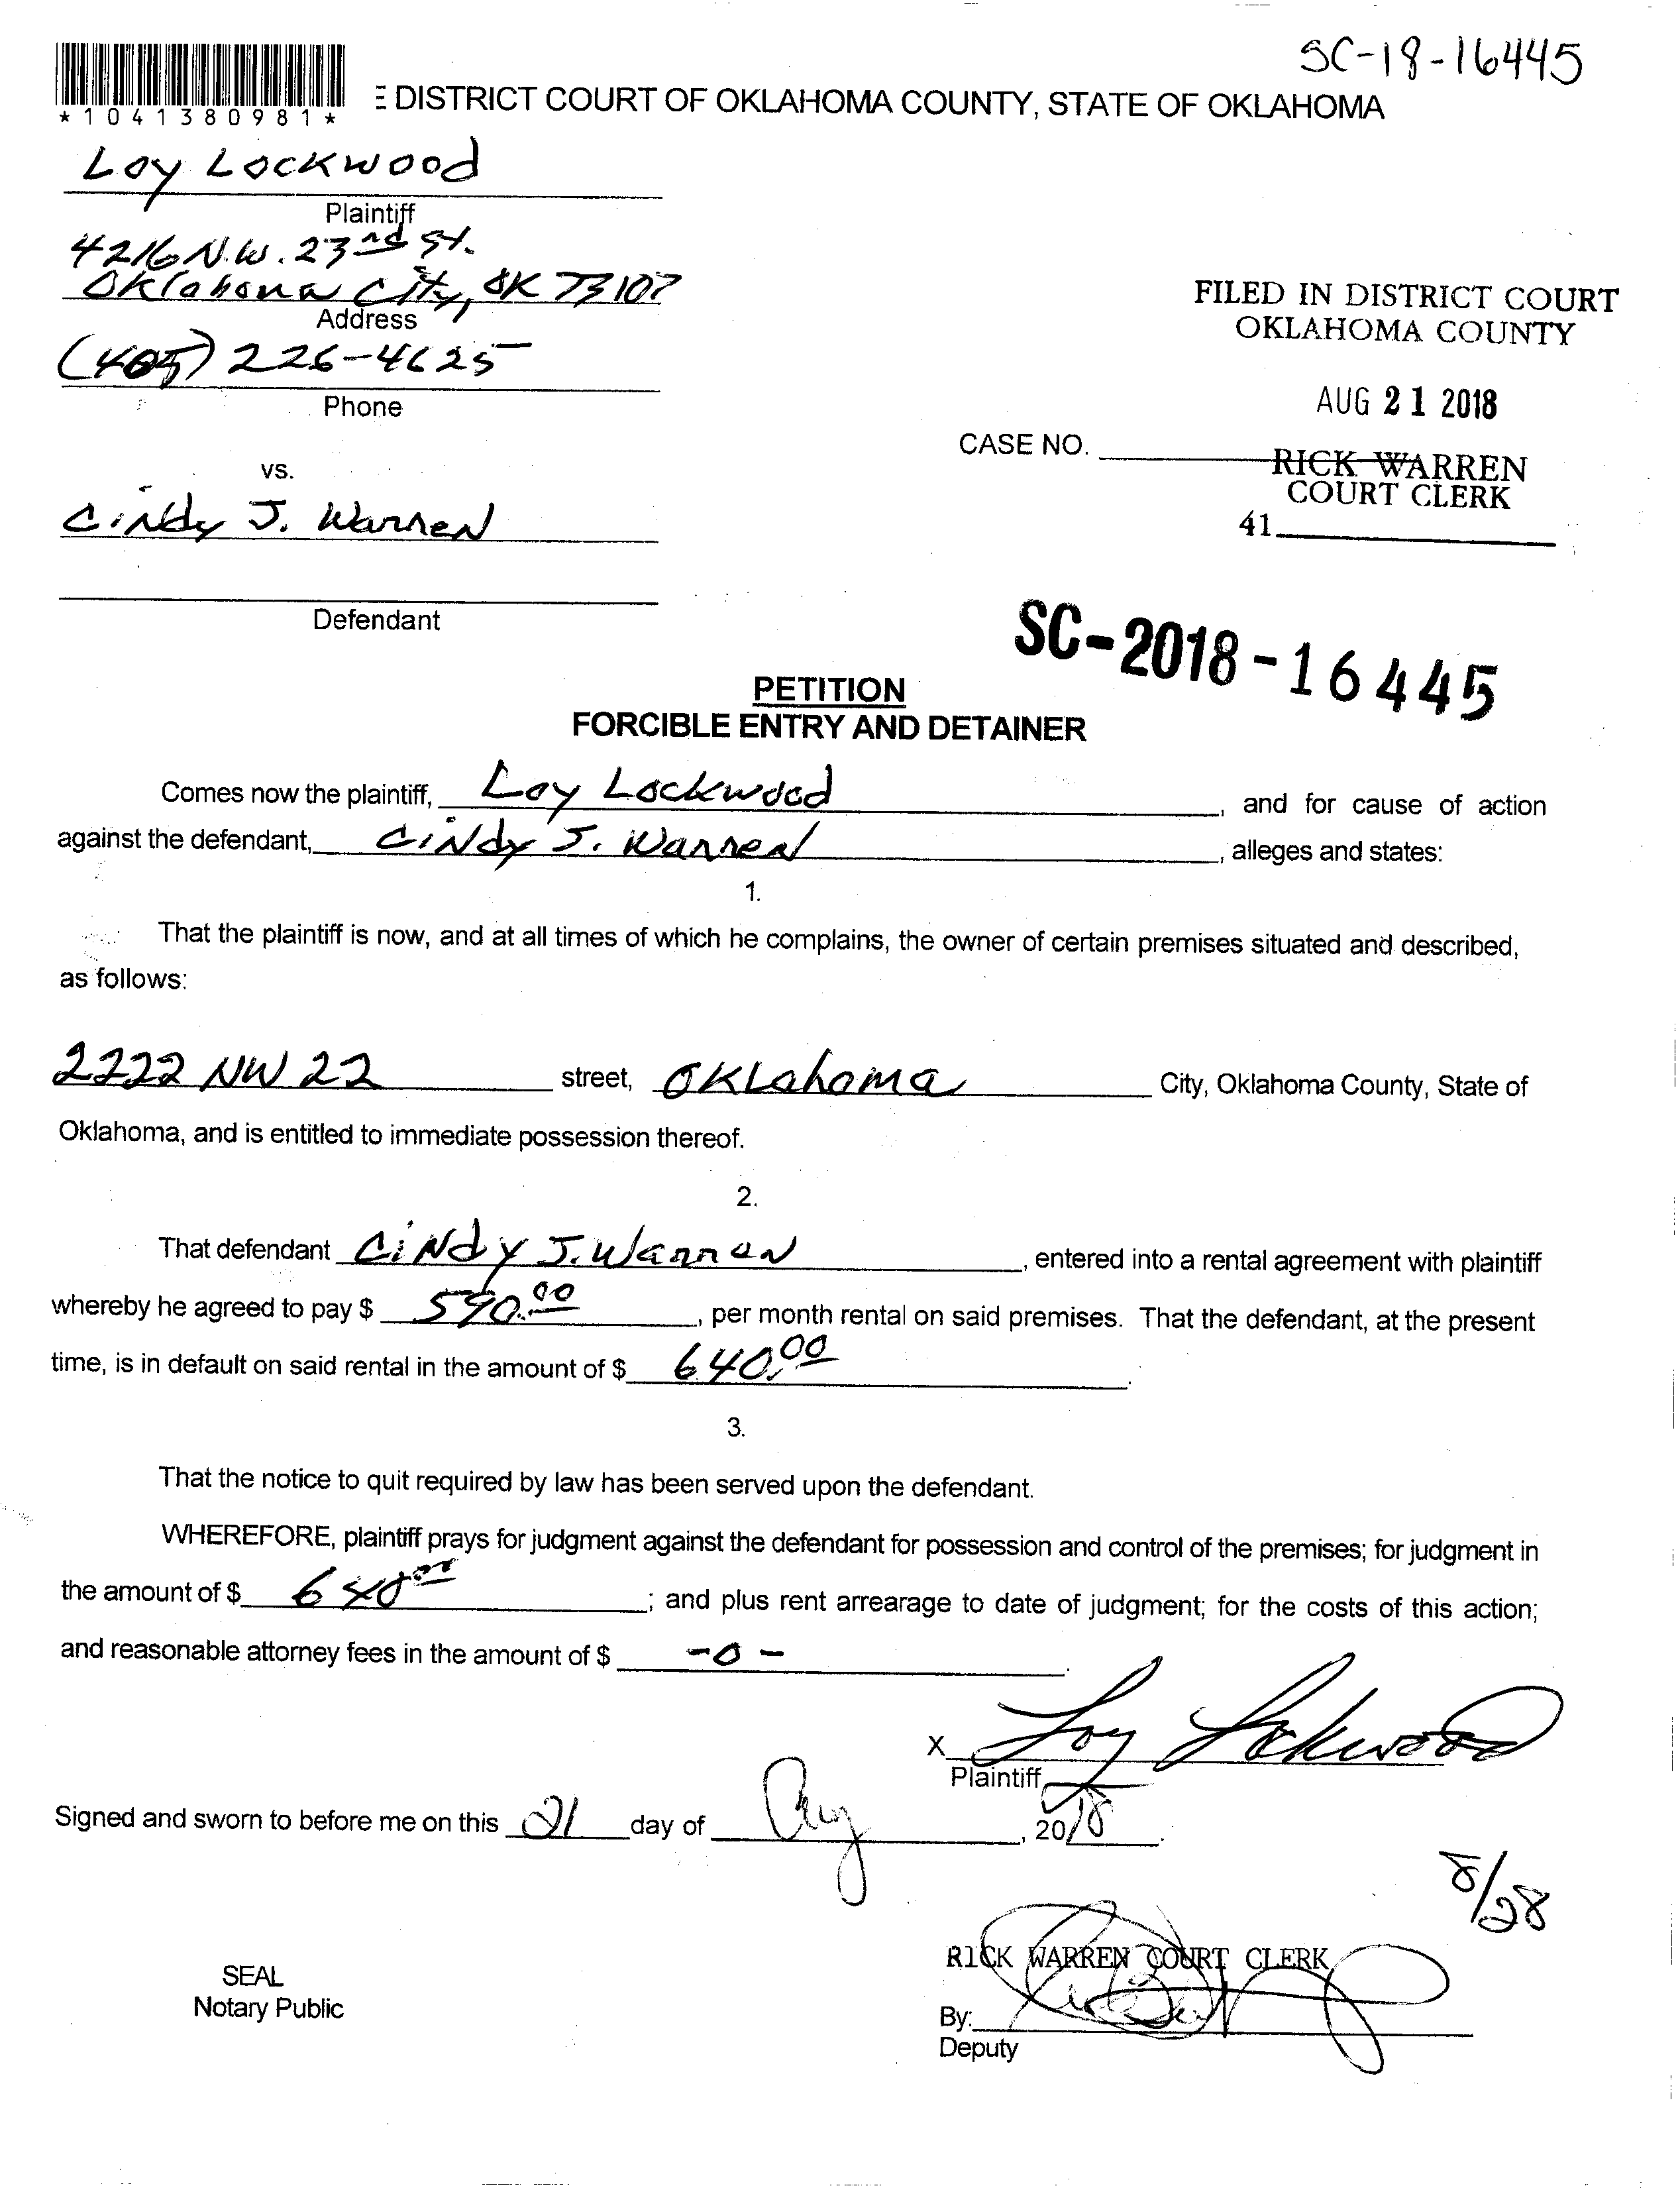 SC-18-16445
*1041380981*
E DISTRICT COURT OF OKLAHOMA COUNTY, STATE OF OKLAHOMA
Loy Lockwood
Plaintiff
4216 N.W. 23rd St.
Oklahoma City, OK 73107
Address
(405) 226-4625
Phone
FILED IN DISTRICT COURT
OKLAHOMA COUNTY
AUG 21 2018
CASE NO.
RICK WARREN
COURT CLERK
41
vs.
Cindy J. Warren
Defendant
SC-2018-16445
PETITION
FORCIBLE ENTRY AND DETAINER
Comes now the plaintiff, Loy Lockwood, and for cause of action
against the defendant, Cindy J. Warren, alleges and states:
1.
That the plaintiff is now, and at all times of which he complains, the owner of certain premises situated and described,
as follows:
2222 NW 22 street, Oklahoma City, Oklahoma County, State of
Oklahoma, and is entitled to immediate possession thereof.
2.
That defendant Cindy J. Warren, entered into a rental agreement with plaintiff
whereby he agreed to pay $ 590.00, per month rental on said premises. That the defendant, at the present
time, is in default on said rental in the amount of $ 640.00.
3.
That the notice to quit required by law has been served upon the defendant.
WHEREFORE, plaintiff prays for judgment against the defendant for possession and control of the premises; for judgment in
the amount of $ 640.00; and plus rent arrearage to date of judgment; for the costs of this action;
and reasonable attorney fees in the amount of $ -0-.
X Loy Lockwood
Plaintiff
Signed and sworn to before me on this 21 day of Aug, 2018.
8/28
RICK WARREN COURT CLERK
SEAL
Notary Public
By:
Deputy